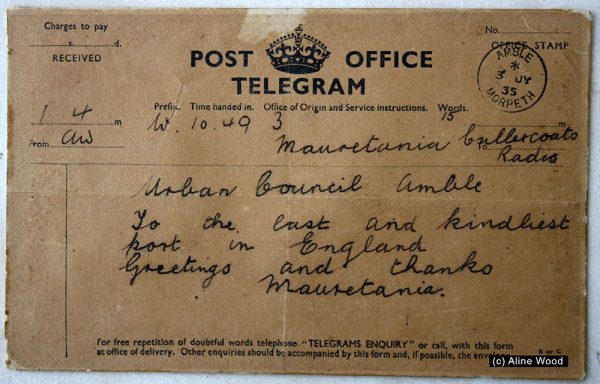 Charges to pay
s. d.
RECEIVED
POST OFFICE
TELEGRAM
No.
OFFICE STAMP
AMBLE
*
3 JY
35
MORPETH
Prefix. Time handed in. Office of Origin and Service instructions. Words.
1 4 m
W. 10.49 3 15
m
From aw
Mauretania Cullercoats
To
Radio
Urban Council Amble
To the last and kindliest
port in England
Greetings and thanks
Mauretania.
For free repetition of doubtful words telephone "TELEGRAMS ENQUIRY" or call, with this form
at office of delivery. Other enquiries should be accompanied by this form and, if possible, the
B or C
(c) Aline Wood